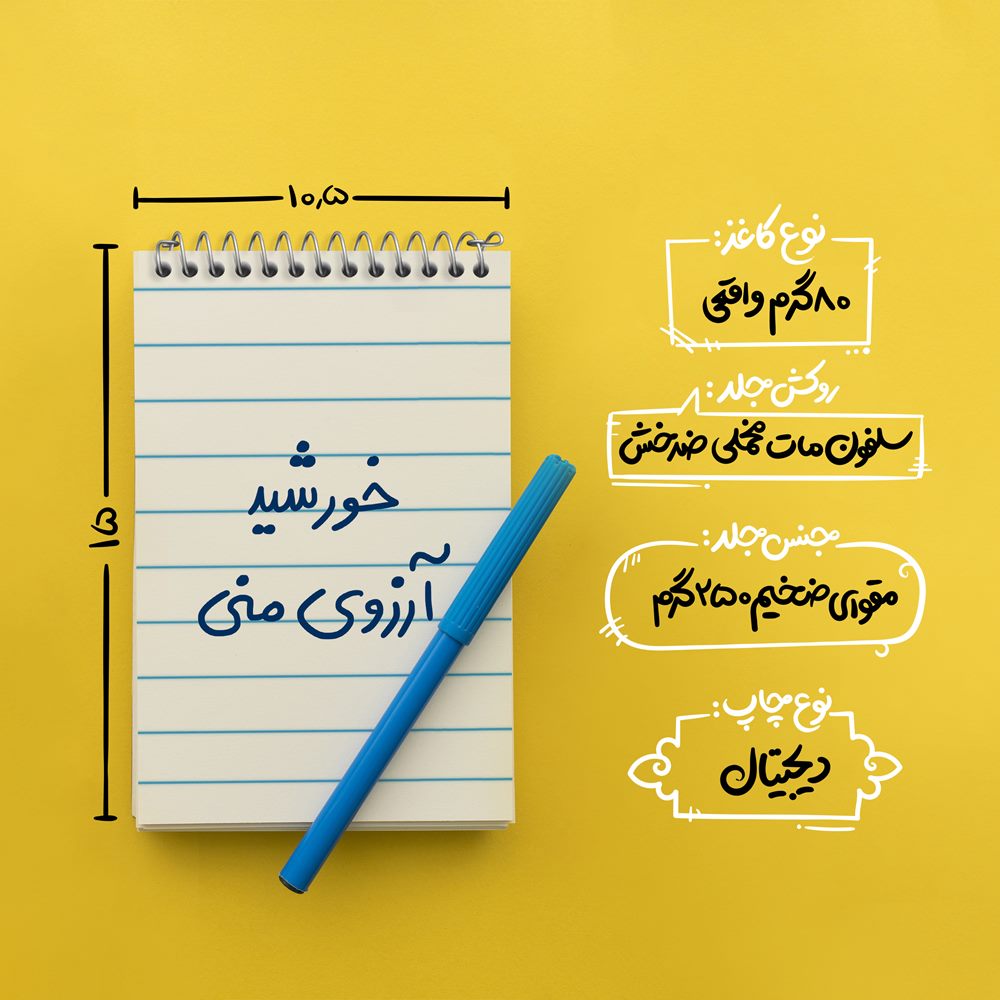 ۱۰٫۵
۱۵
خورشید
آرزوی منی
نوع کاغذ:
۸۰ گرم واقعی
روکش جلد:
سلفون مات مخملی ضدخش
جنس جلد:
مقوای ضخیم ۲۵۰ گرم
نوع چاپ:
دیجیتال